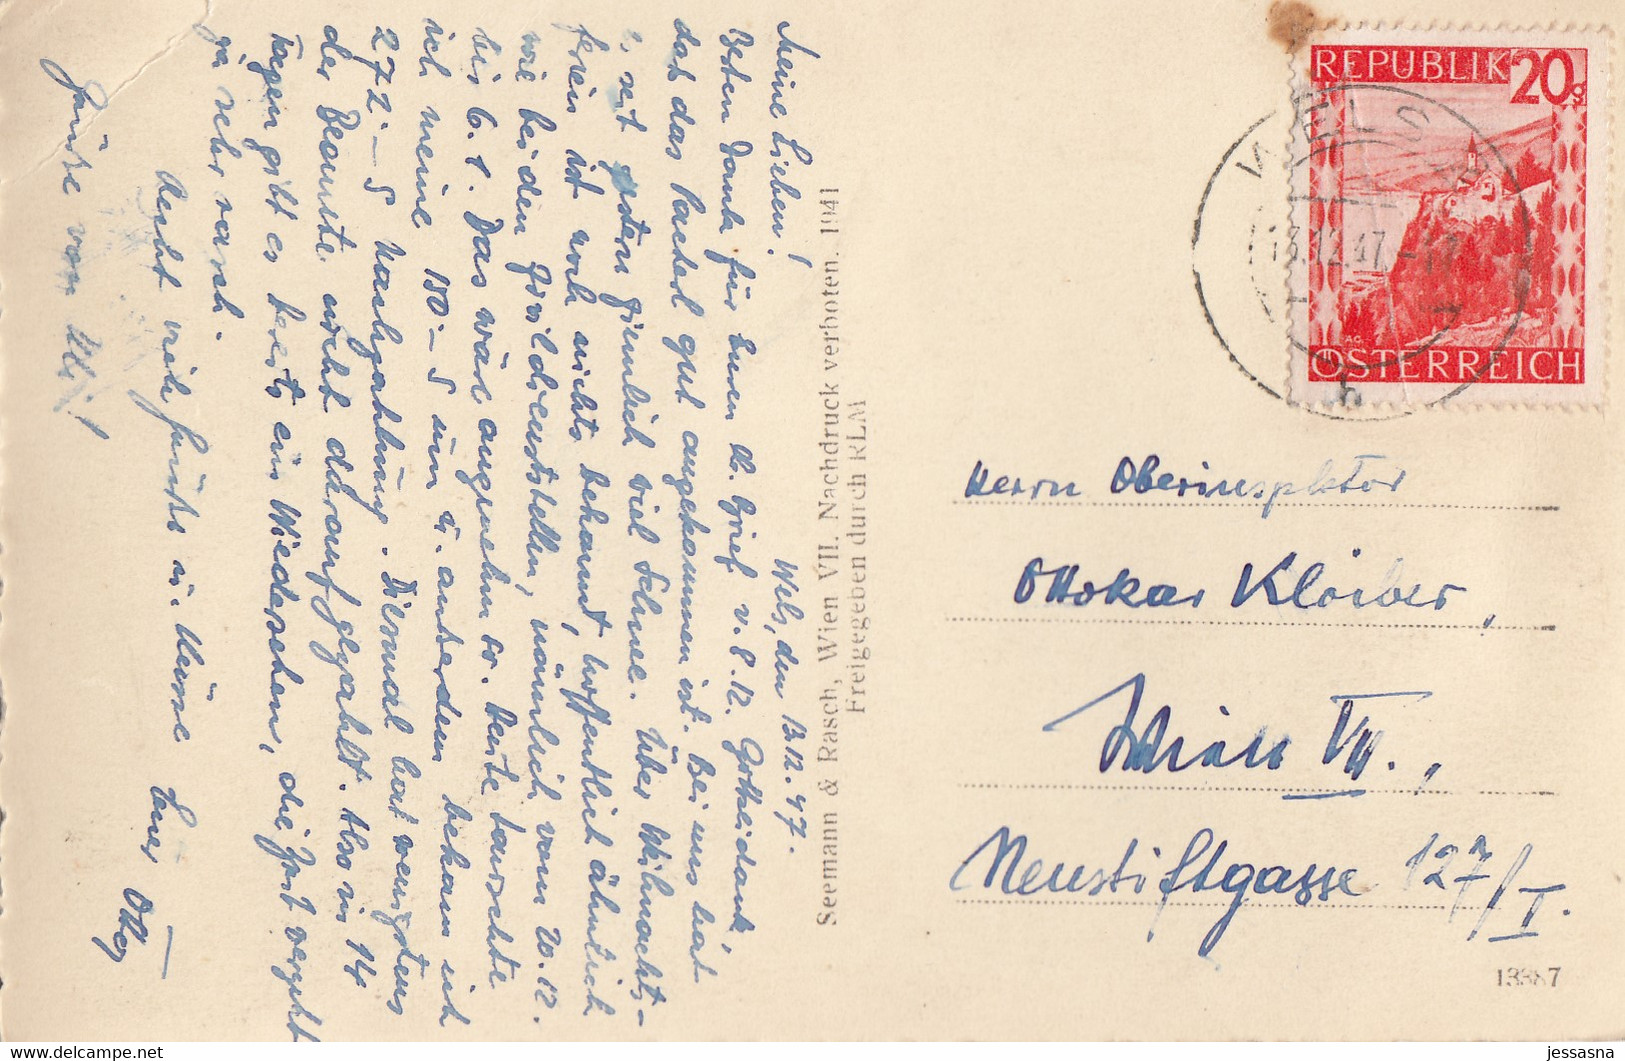 Wels, den 13.12.47.
Meine Lieben!
Besten Dank für Euren lb. Brief v. 8.12. Gottseidank,
daß das Packerl gut angekommen ist. Bei uns hat
es seit gestern ziemlich viel Schnee. Über Weihnachts-
ferien ist noch nichts bekannt, hoffentlich ähnlich
wie bei den Zivildienststellen, nämlich vom 20.12.
bis 6.1. Das wäre angenehm. Heute tauschte
ich meine 150.- S um u. außerdem bekam ich
272.- S Nachzahlung. Diesmal hat wenigstens
der Beamte nicht darauf gezahlt. Also in 14
Tagen gibt es bereits ein Wiedersehen, die Zeit vergeht
ja sehr rasch.
Recht viele Grüße u. Küsse Euer
Grüße von
Seemann & Rasch, Wien VII. Nachdruck verboten. 1941
Freigegeben durch RLM
REPUBLIK 20g
ÖSTERREICH
WELS
13.12.47
Herrn Oberinspektor
Ottokar Kloiber,
Wien VII.,
Neustiftgasse 127/I.
13387
jessasna